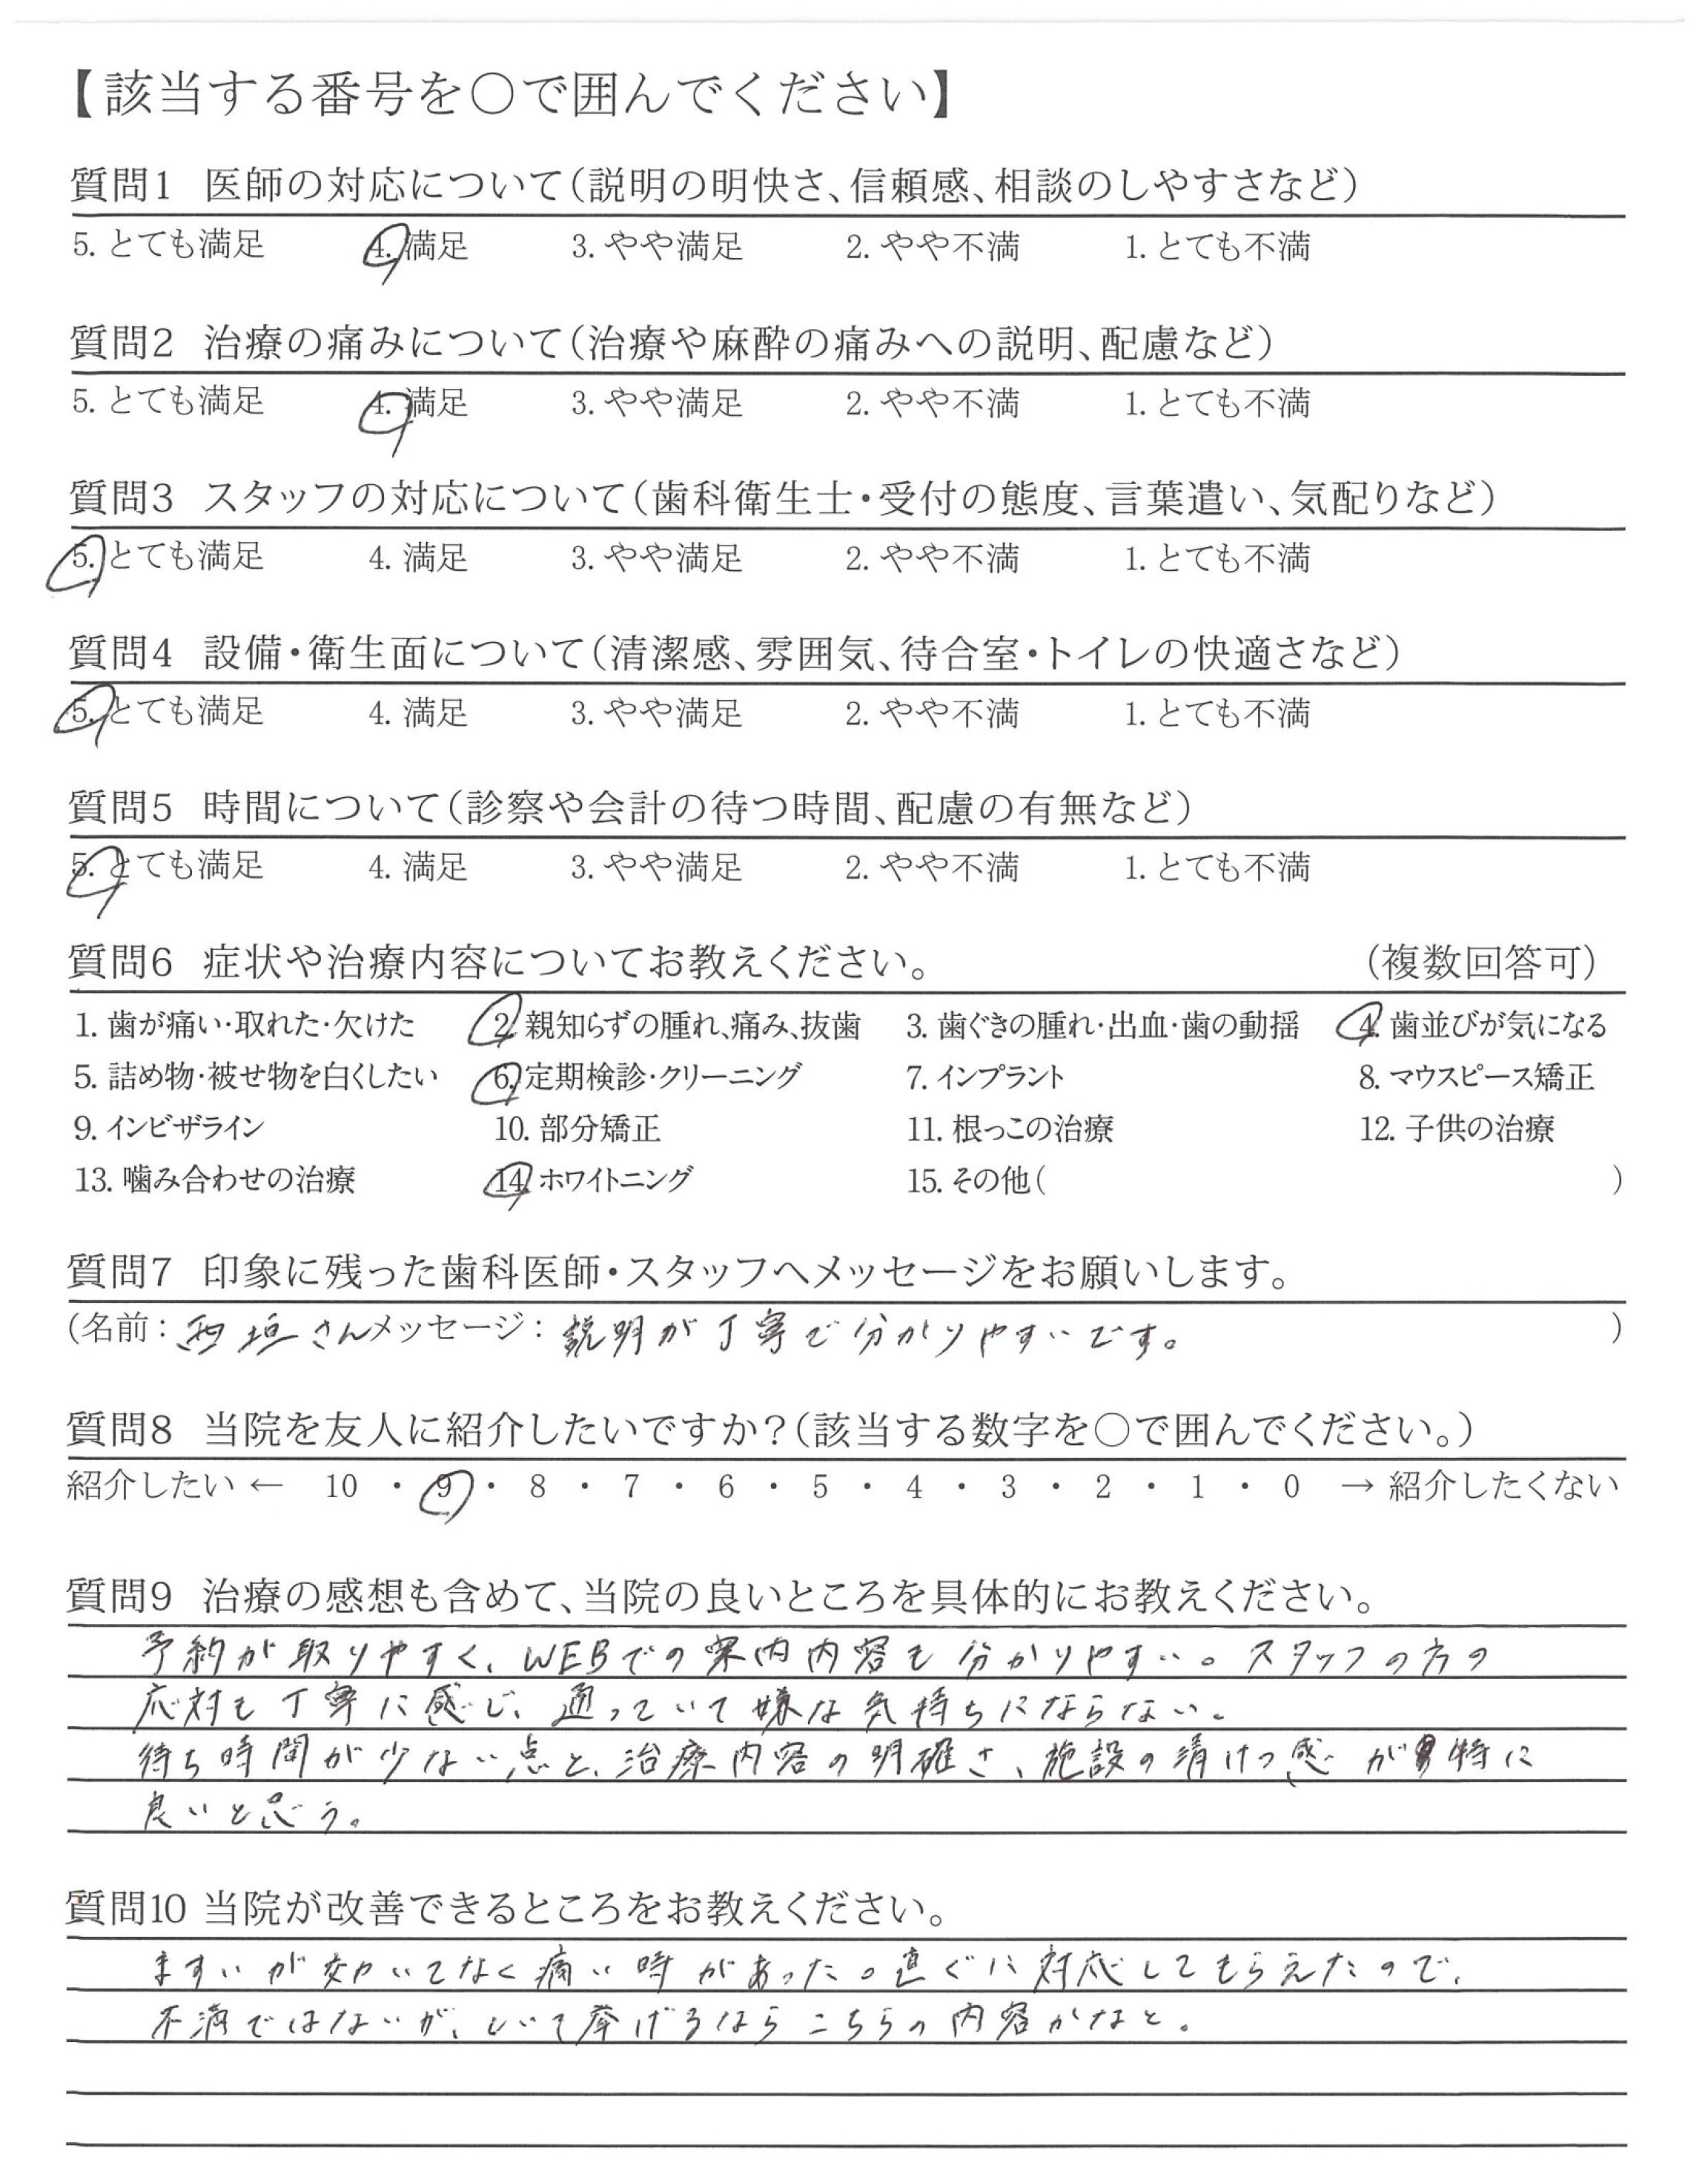 【該当する番号を〇で囲んでください】
質問1 医師の対応について(説明の明快さ、信頼感、相談のしやすさなど)
5. とても満足 4. 満足 3. やや満足 2. やや不満 1. とても不満
質問2 治療の痛みについて(治療や麻酔の痛みへの説明、配慮など)
5. とても満足 4. 満足 3. やや満足 2. やや不満 1. とても不満
質問3 スタッフの対応について(歯科衛生士・受付の態度、言葉遣い、気配りなど)
5. とても満足 4. 満足 3. やや満足 2. やや不満 1. とても不満
質問4 設備・衛生面について(清潔感、雰囲気、待合室・トイレの快適さなど)
5. とても満足 4. 満足 3. やや満足 2. やや不満 1. とても不満
質問5 時間について(診察や会計の待つ時間、配慮の有無など)
5. とても満足 4. 満足 3. やや満足 2. やや不満 1. とても不満
質問6 症状や治療内容についてお教えください。 (複数回答可)
1. 歯が痛い・取れた・欠けた 2. 親知らずの腫れ、痛み、抜歯 3. 歯ぐきの腫れ・出血・歯の動揺 4. 歯並びが気になる
5. 詰め物・被せ物を白くしたい 6. 定期検診・クリーニング 7. インプラント 8. マウスピース矯正
9. インビザライン 10. 部分矯正 11. 根っこの治療 12. 子供の治療
13. 噛み合わせの治療 14. ホワイトニング 15. その他( )
質問7 印象に残った歯科医師・スタッフへメッセージをお願いします。
(名前: 西垣さん メッセージ: 説明が丁寧で分かりやすいです。 )
質問8 当院を友人に紹介したいですか?(該当する数字を〇で囲んでください。)
紹介したい ← 10 ・ 9 ・ 8 ・ 7 ・ 6 ・ 5 ・ 4 ・ 3 ・ 2 ・ 1 ・ 0 → 紹介したくない
質問9 治療の感想も含めて、当院の良いところを具体的にお教えください。
予約が取りやすく、WEBでの案内内容も分かりやすい。スタッフの方の
応対も丁寧に感じ、通っていて嫌な気持ちにならない。
待ち時間が少ない点と、治療内容の明確さ、施設の清けつ感が特に
良いと思う。
質問10 当院が改善できるところをお教えください。
ますいが効いてなく痛い時があった。直ぐに対応してもらえたので、
不満ではないが、しいて挙げるならこちらの内容かなと。